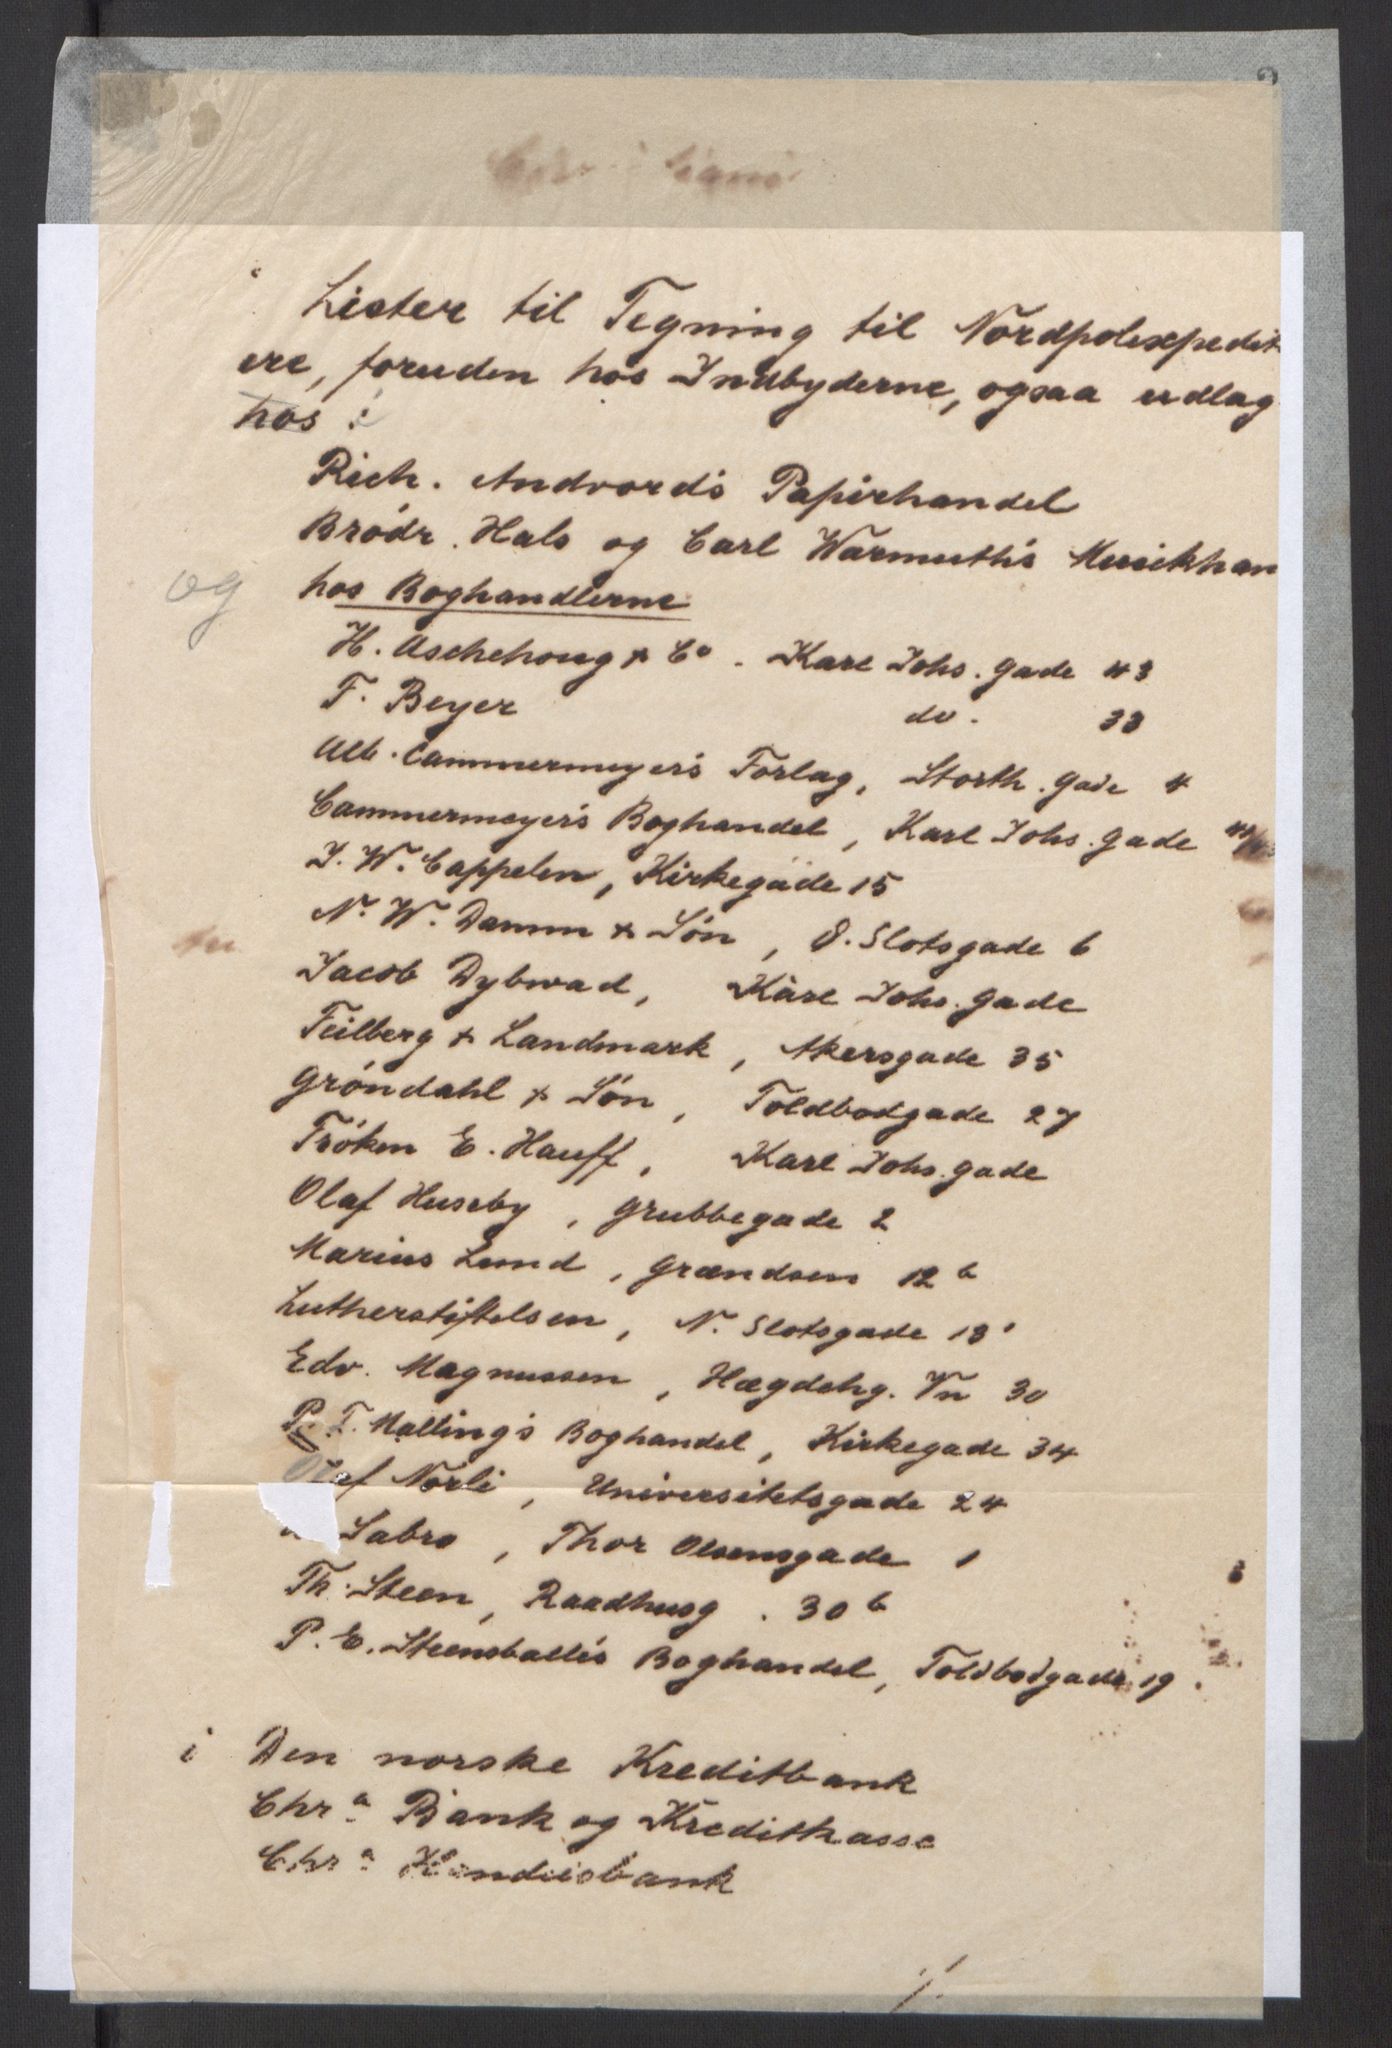 Lister til Tegning til Nordpolexpedit
ere, foruden hos Indbyderne, ogsaa udlag
hos :
Rich. Andvord's Papirhandel
Brödr. Hals og Carl Warmuth's Musikhan
og hos Boghandlerne
H. Aschehoug & Co. Karl Johs. Gade 43
F. Beyer do. 33
Alb. Cammermeyer's Forlag, Storth. Gade 4
Cammermeyer's Boghandel, Karl Johs. Gade
J. W. Cappelen, Kirkegade 15
N. W. Damm & Sön, Ö. Slotsgade 6
Jacob Dybwad, Karl Johs. Gade
Feilberg & Landmark, Akersgade 35
Gröndahl & Sön, Toldbodgade 27
Fröken E. Hauff, Karl Johs. Gade
Olaf Huseby, Grubbegade 2
Marius Lund, Grændsen 12 b
Lutherstiftelsen, N. Slotsgade 13
Edv. Magnussen, Hægdehg. Vn 30
P. T. Malling's Boghandel, Kirkegade 34
Olaf Norli, Universitetsgade 24
Sabro, Thor Olsensgade 1
Th. Steen, Raadhusg. 30 b
P. E. Steensballe's Boghandel, Toldbodgade 19.
i Den norske Kreditbank
Chr a Bank og Kreditkasse
Chr a Handelsbank
./.